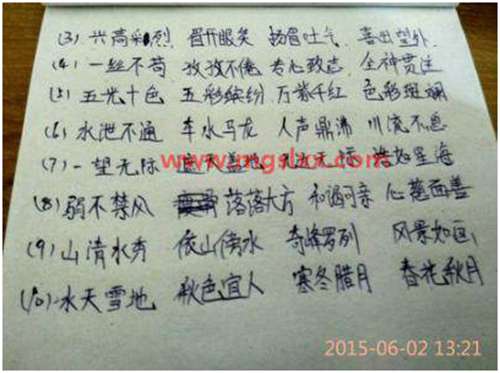 (3) 兴高彩烈 眉开眼笑 扬眉吐气 喜出望外
(4) 一丝不苟 孜孜不倦 专心致志 全神贯注
(5) 五光十色 五彩缤纷 万紫千红 色彩斑斓
(6) 水泄不通 车水马龙 人声鼎沸 川流不息
(7) 一望无际 遮天盖地 浩如星海
www.mgslxx.com
(8) 弱不禁风 落落大方 和谒可亲 心慈面善
(9) 山清水秀 依山傍水 奇峰罗列 风景如画
(10) 水天雪地 秋色宜人 寒冬腊月 春花秋月
2015-06-02 13:21